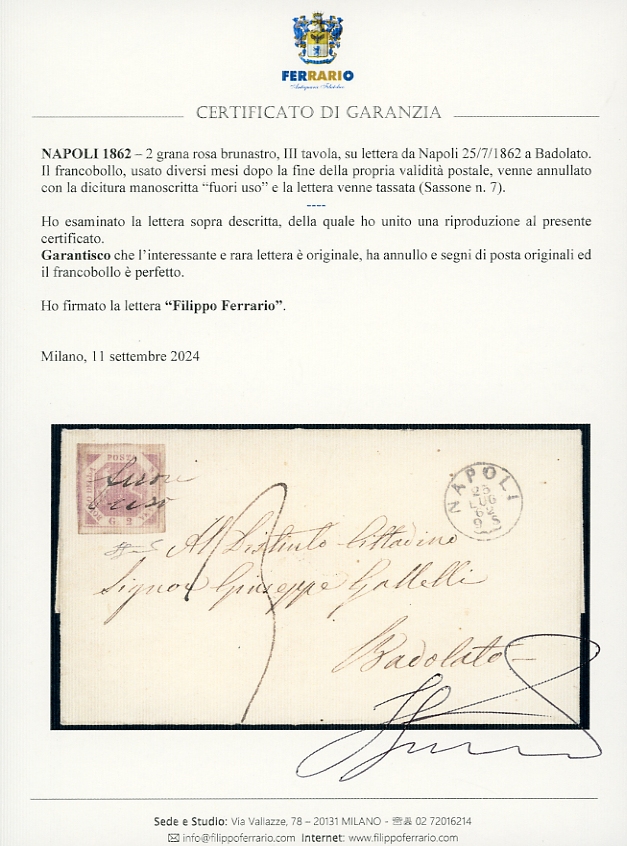 FERRARIO
CERTIFICATO DI GARANZIA
NAPOLI 1862 – 2 grana rosa brunastro, III tavola, su lettera da Napoli 25/7/1862 a Badolato.
Il francobollo, usato diversi mesi dopo la fine della propria validità postale, venne annullato
con la dicitura manoscritta “fuori uso” e la lettera venne tassata (Sassone n. 7).
----
Ho esaminato la lettera sopra descritta, della quale ho unito una riproduzione al presente
certificato.
Garantisco che l’interessante e rara lettera è originale, ha annullo e segni di posta originali ed
il francobollo è perfetto.
Ho firmato la lettera “Filippo Ferrario”.
Milano, 11 settembre 2024
POSTA
DELLA
G 2
NAPOLI
25
LUG
62
9 S
Al Distinto Cittadino
Signor Giuseppe Gallelli
Badolato
Sede e Studio: Via Vallazze, 78 – 20131 MILANO - ☏ 02 72016214
✉ info@filippoferrario.com Internet: www.filippoferrario.com